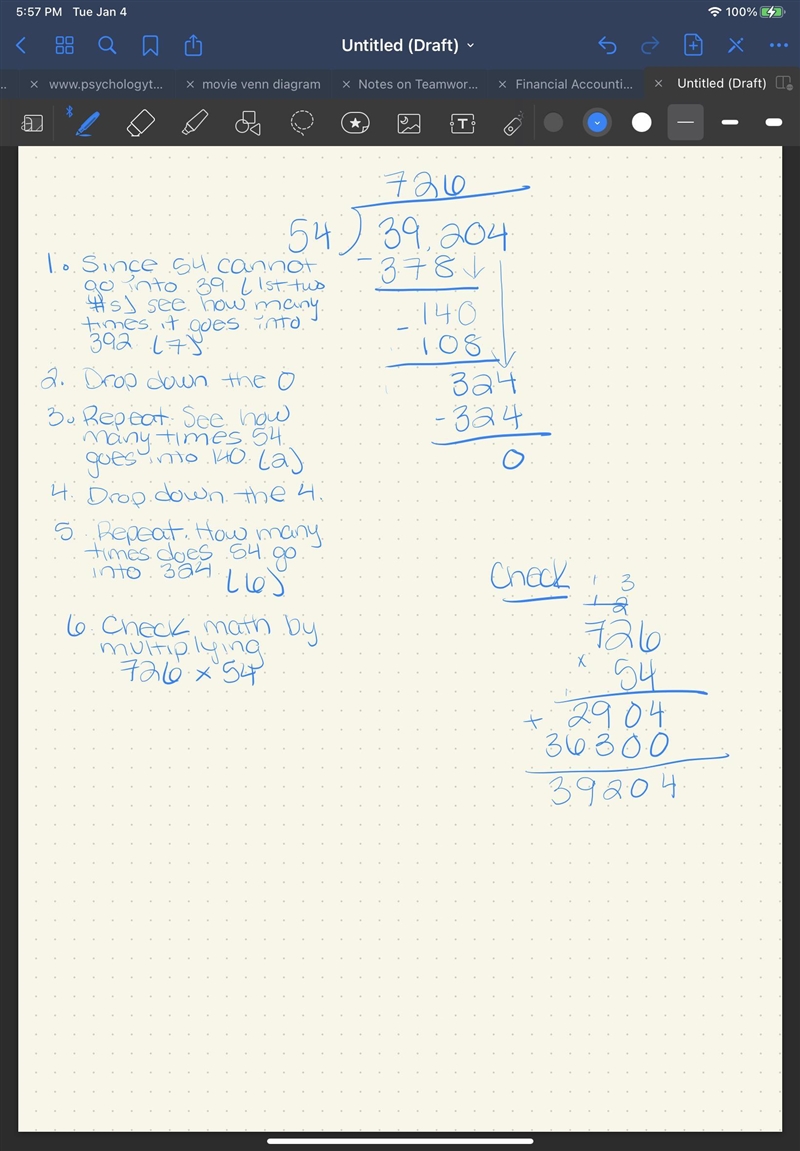 5:57 PM Tue Jan 4
100%
Untitled (Draft)
www.psychologyt...
movie venn diagram
Notes on Teamwor...
Financial Accounti...
Untitled (Draft)
T
726
54 ) 39,204
- 378
- 140
108
324
- 324
0
1. Since 54 cannot
go into 39 (1st two
#s) see how many
times it goes into
392 (7)
2. Drop down the 0
3. Repeat. See how
many times 54
goes into 140 (2)
4. Drop down the 4.
5. Repeat. How many
times does 54 go
into 324 (6)
6. Check math by
multiplying
726 x 54
Check
1 3
1 2
726
x 54
+ 2904
36300
39204